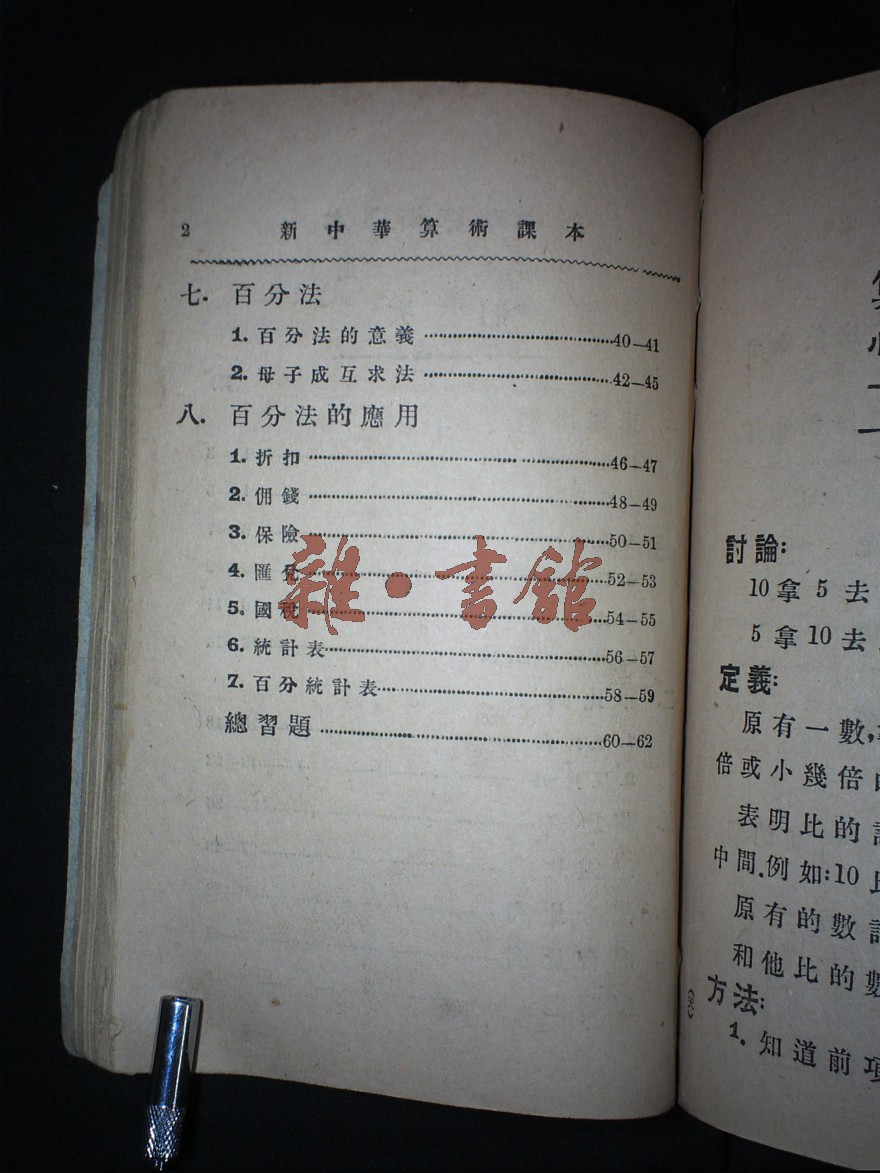 2 新中華算術課本
七. 百分法
1. 百分法的意義 ……40—41
2. 母子成互求法 ……42—45
八. 百分法的應用
1. 折扣 ……46—47
2. 佣錢 ……48—49
3. 保險 ……50—51
4. 匯兌 ……52—53
5. 國稅 ……54—55
6. 統計表 ……56—57
7. 百分統計表 ……58—59
總習題 ……60—62
雜·書館
討論:
10拿5去
5拿10去
定義:
原有一數,
倍或小幾倍
表明比的
中間.例如:10
原有的數
和他比的數
方法:
1. 知道前項